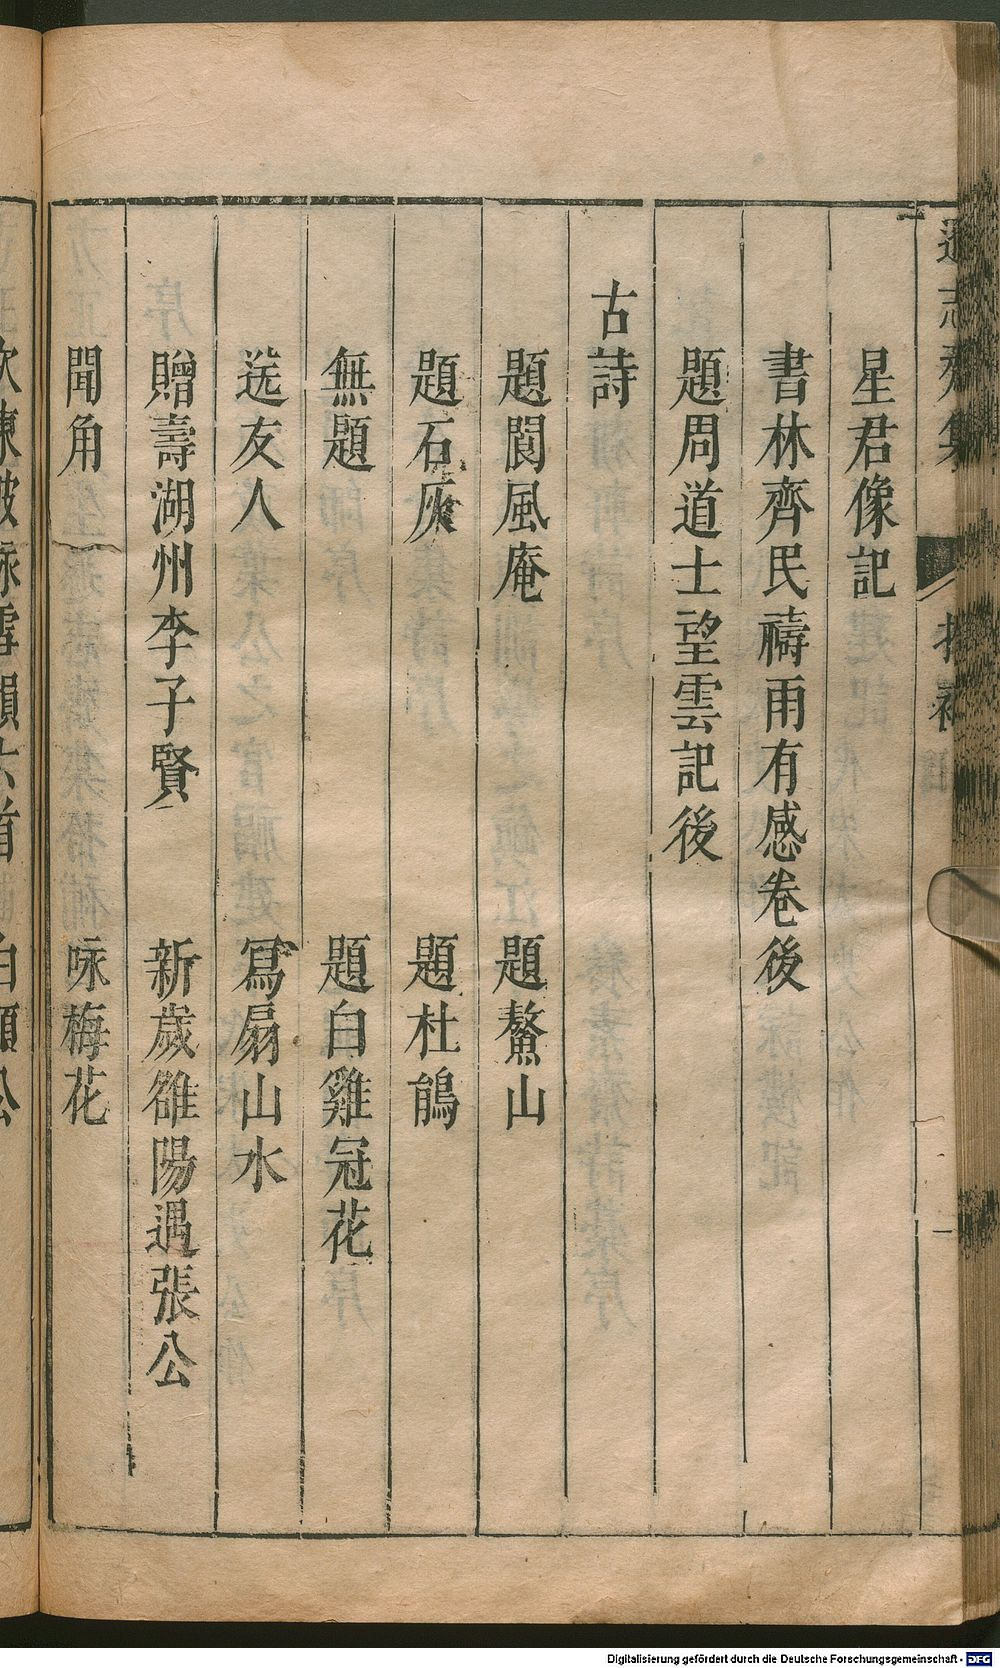 遜志齋集
拾補
星君像記
書林齊民禱雨有感卷後
題周道士望雲記後
古詩
題閬風庵 題鰲山
題石灰 題杜鵑
無題 題白雞冠花
送友人 寫扇山水
贈壽湖州李子賢 新歲雒陽遇張公
聞角 咏梅花
次東坡咏雪韻六首
Digitalisierung gefördert durch die Deutsche Forschungsgemeinschaft - DFG